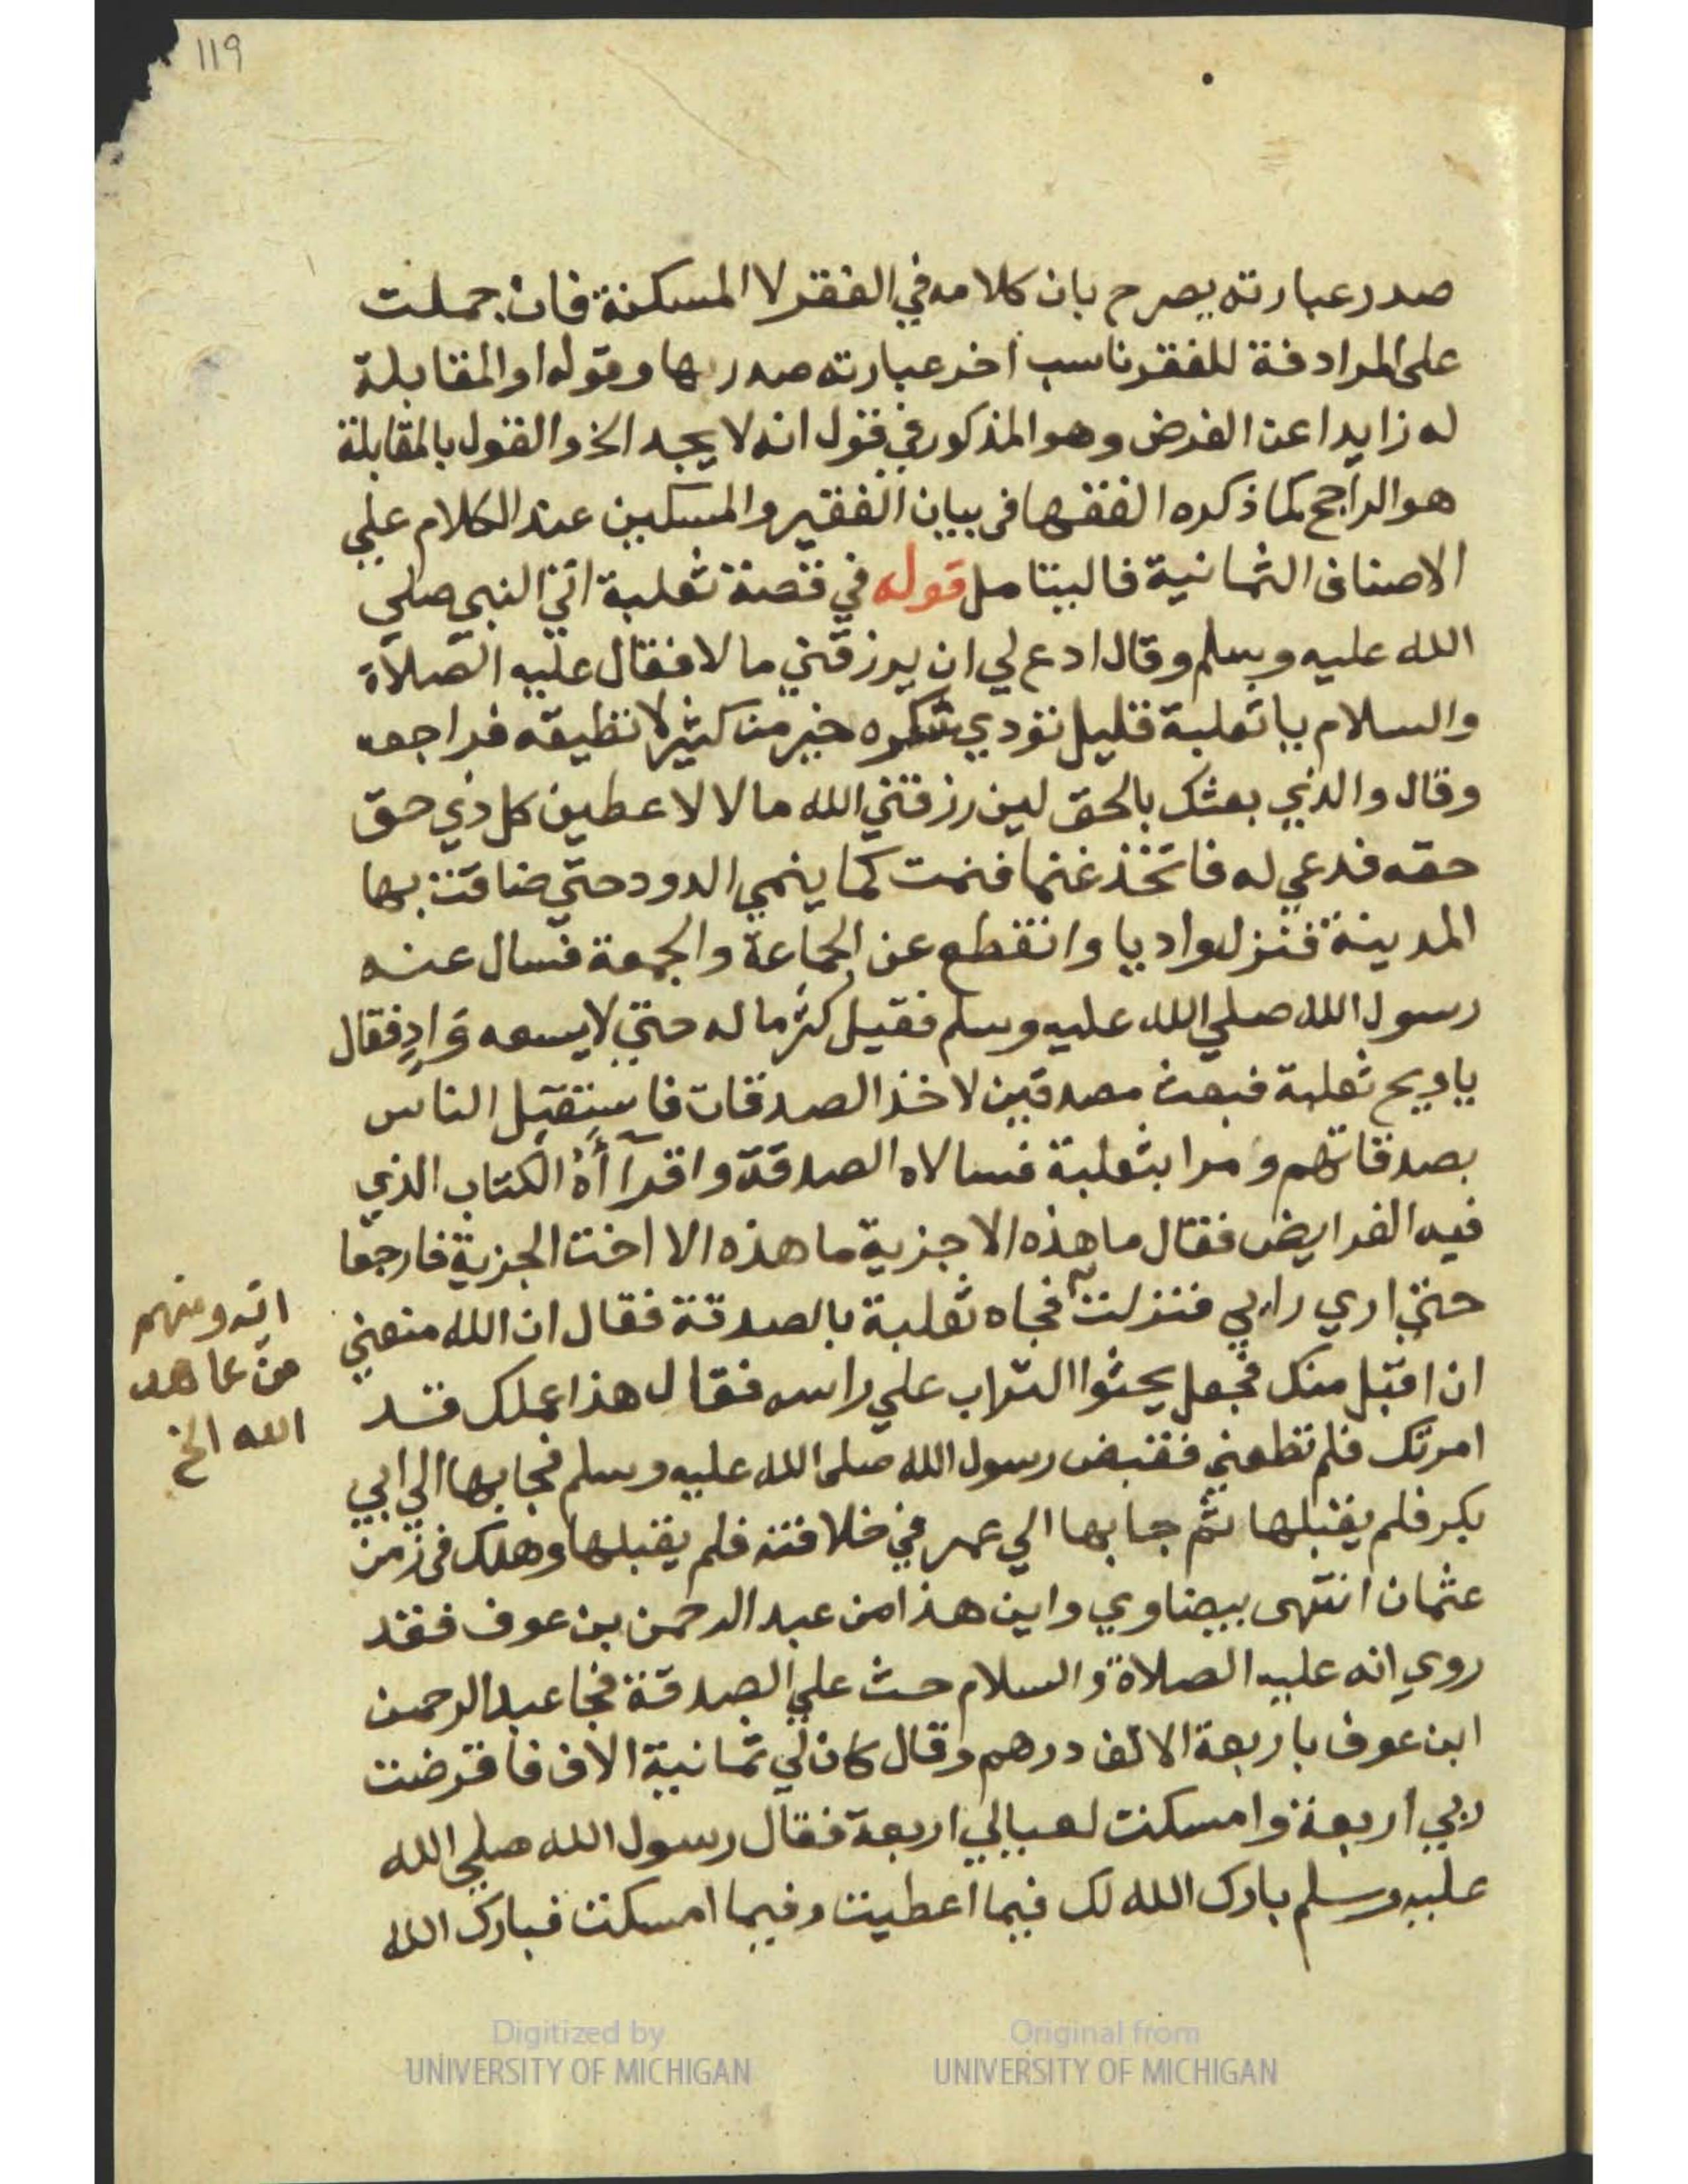 119
صدر عبارته يصرح بان كلامه في الفقر لا المسكنة فان حملت
على المرادفة للفقر ناسب اخر عبارته صدرها وقوله او المقابلة
له زايدا عن الفرض وهو المذكور في قول انه لا يجد الخ والقول بالمقابلة
هو الراجح كما ذكره الفقها فى بيان الفقير والمسكين عند الكلام علي
الاصناف الثمانية فاليتامل قوله في قصة ثعلبة اتي النبي صلي
الله عليه وسلم وقال ادع لي ان يرزقني مالا فقال عليه الصلاة
والسلام يا ثعلبة قليل تؤدي شكره خير من كثير لا تطيقه فراجعه
وقال والذي بعثك بالحق لين رزقني الله مالا لاعطين كل ذي حق
حقه فدعي له فاتخذ غنما فنمت كما ينمي الدود حتي ضاقت بها
المدينة فنزل واديا وانقطع عن الجماعة والجمعة فسال عنه
رسول الله صلي الله عليه وسلم فقيل كثر ماله حتي لا يسعه وادٍ فقال
يا ويح ثعلبة فبعث مصدقين لاخذ الصدقات فاستقبل الناس
بصدقاتهم ومرا بثعلبة فسالاه الصدقة واقرآأه الكتاب الذي
فيه الفرايض فقال ما هذه الا جزية ما هذه الا اخت الجزية فارجعا
حتي اري رايي فنزلت فجاه ثعلبة بالصدقة فقال ان الله منعني
ان اقبل منك فجعل يحثوا التراب علي راسه فقال هذا عملك قد
امرتك فلم تطعني فقبض رسول الله صلى الله عليه وسلم فجا بها الي ابي
بكر فلم يقبلها ثم جا بها الي عمر في خلافته فلم يقبلها وهلك في زمن
عثمان انتهى بيضاوي واين هذا من عبد الرحمن بن عوف فقد
روي انه عليه الصلاة والسلام حث علي الصدقة فجا عبد الرحمن
ابن عوف باربعة الالف درهم وقال كان لي ثمانية الاف فاقرضت
ربي اربعة وامسكت لعيالي اربعة فقال رسول الله صلي الله
عليه وسلم بارك الله لك فيما اعطيت وفيما امسكت فبارك الله
ومنهم
من عاهد
الله الخ
Digitized by
UNIVERSITY OF MICHIGAN
Original from
UNIVERSITY OF MICHIGAN